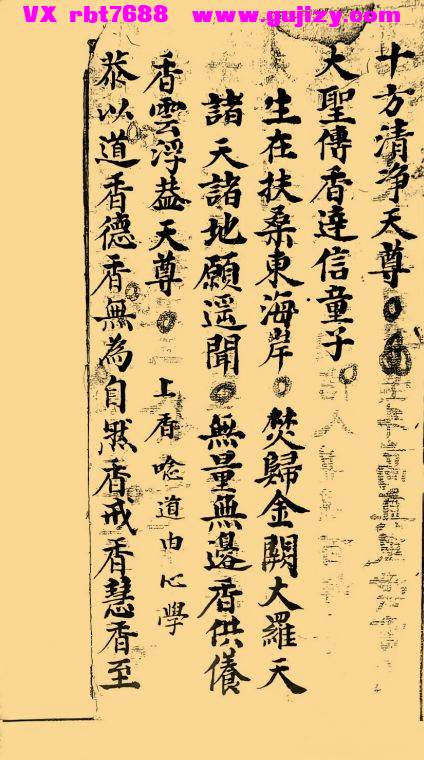 VX rbt7688 www.gujizy.com
十方清净天尊
大聖傳香達信童子
生在扶桑東海岸 焚歸金闕大羅天
諸天諸地願遥聞 無量無邊香供養
香雲浮蓋天尊 上香唸道由心學
恭以道香德香無為自然香戒香慧香至